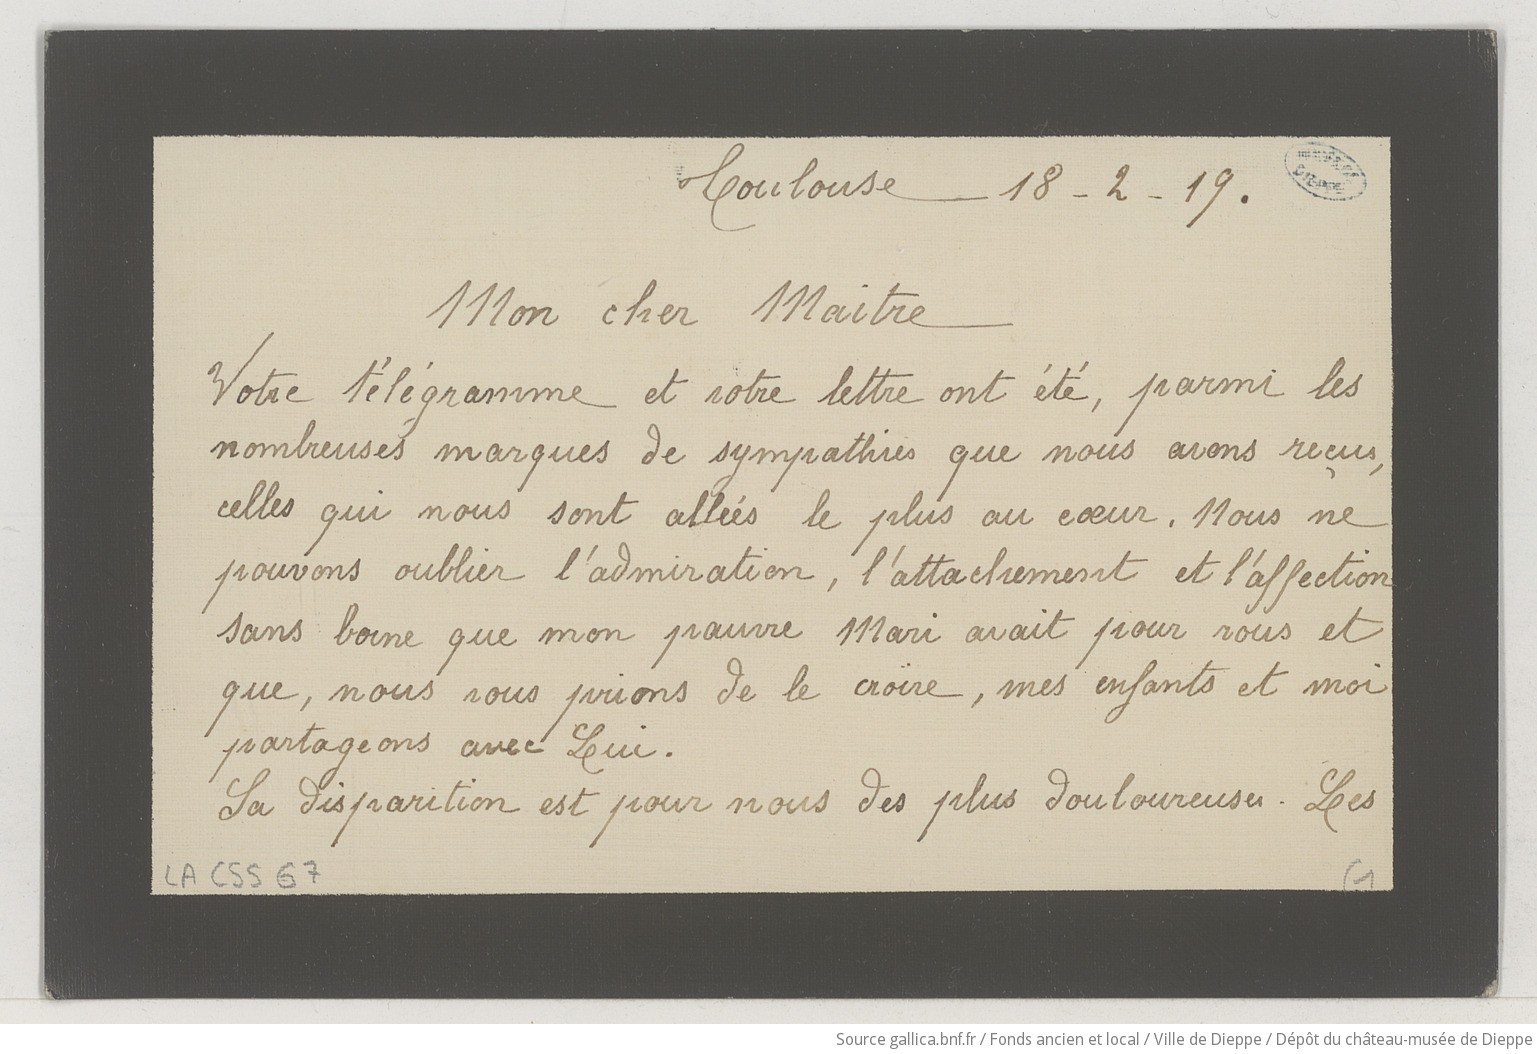 Toulouse — 18 - 2 - 19.
Mon cher Maitre
Votre télégramme et votre lettre ont été, parmi les
nombreuses marques de sympathies que nous avons reçus,
celles qui nous sont allées le plus au cœur. Nous ne
pouvons oublier l'admiration, l'attachement et l'affection
sans borne que mon pauvre Mari avait pour vous et
que, nous vous prions de le croire, mes enfants et moi
partageons avec Lui.
Sa disparition est pour nous des plus douloureuses. Les
LA CSS 67
Source gallica.bnf.fr / Fonds ancien et local / Ville de Dieppe / Dépôt du château-musée de Dieppe